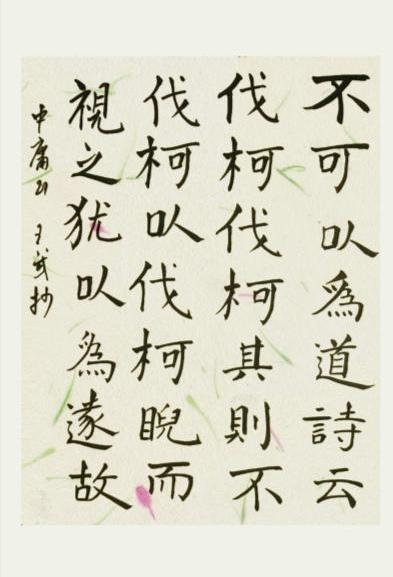 不可以為道詩云
伐柯伐柯其則不
伐柯以伐柯睨而
視之犹以為遂故
中庸 抄